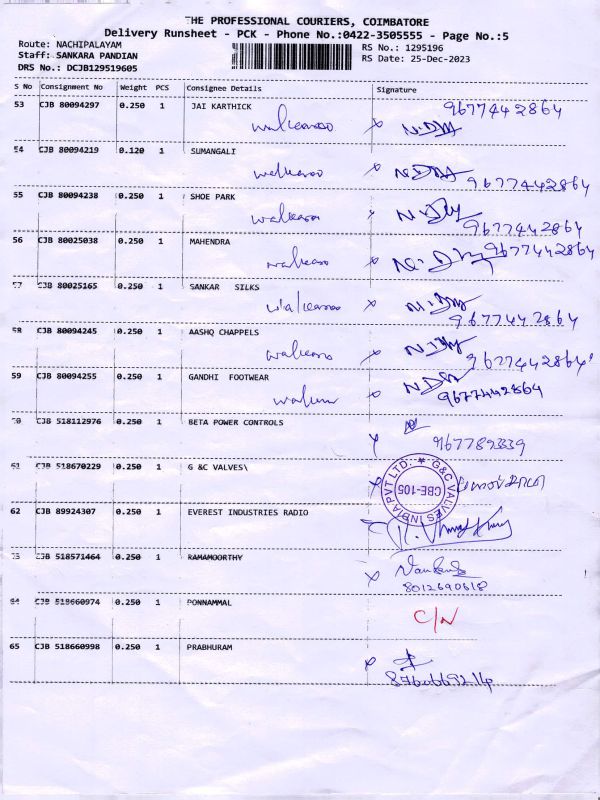 THE PROFESSIONAL COURIERS, COIMBATORE
Delivery Runsheet - PCK - Phone No.:0422-3505555 - Page No.:5
Route: NACHIPALAYAM
Staff: SANKARA PANDIAN
DRS No.: DCJB129519605
RS No.: 1295196
RS Date: 25-Dec-2023
S No Consignment No Weight PCS Consignee Details Signature
53 CJB 80094297 0.250 1 JAI KARTHICK 9677442864
walkaroo x N.
54 CJB 80094219 0.120 1 SUMANGALI
walkaroo x 9677442864
55 CJB 80094238 0.250 1 SHOE PARK
walkaroo x 9677442864
56 CJB 80025038 0.250 1 MAHENDRA 9677442864
walkaroo x
57 CJB 80025165 0.250 1 SANKAR SILKS
walkaroo x 9677442864
58 CJB 80094245 0.250 1 AASHQ CHAPPELS
walkaroo x 9677442864
59 CJB 80094255 0.250 1 GANDHI FOOTWEAR
x 9677442864
60 CJB 518112976 0.250 1 BETA POWER CONTROLS
x
61 CJB 518670229 0.250 1 G &C VALVES\
G&C VALVES INDIA PVT LTD. ★
CBE-105
62 CJB 89924307 0.250 1 EVEREST INDUSTRIES RADIO
CJB 518571464 0.250 1 RAMAMOORTHY
x
8012690618
64 CJB 518660974 0.250 1 PONNAMMAL
C/N
65 CJB 518660998 0.250 1 PRABHURAM
x